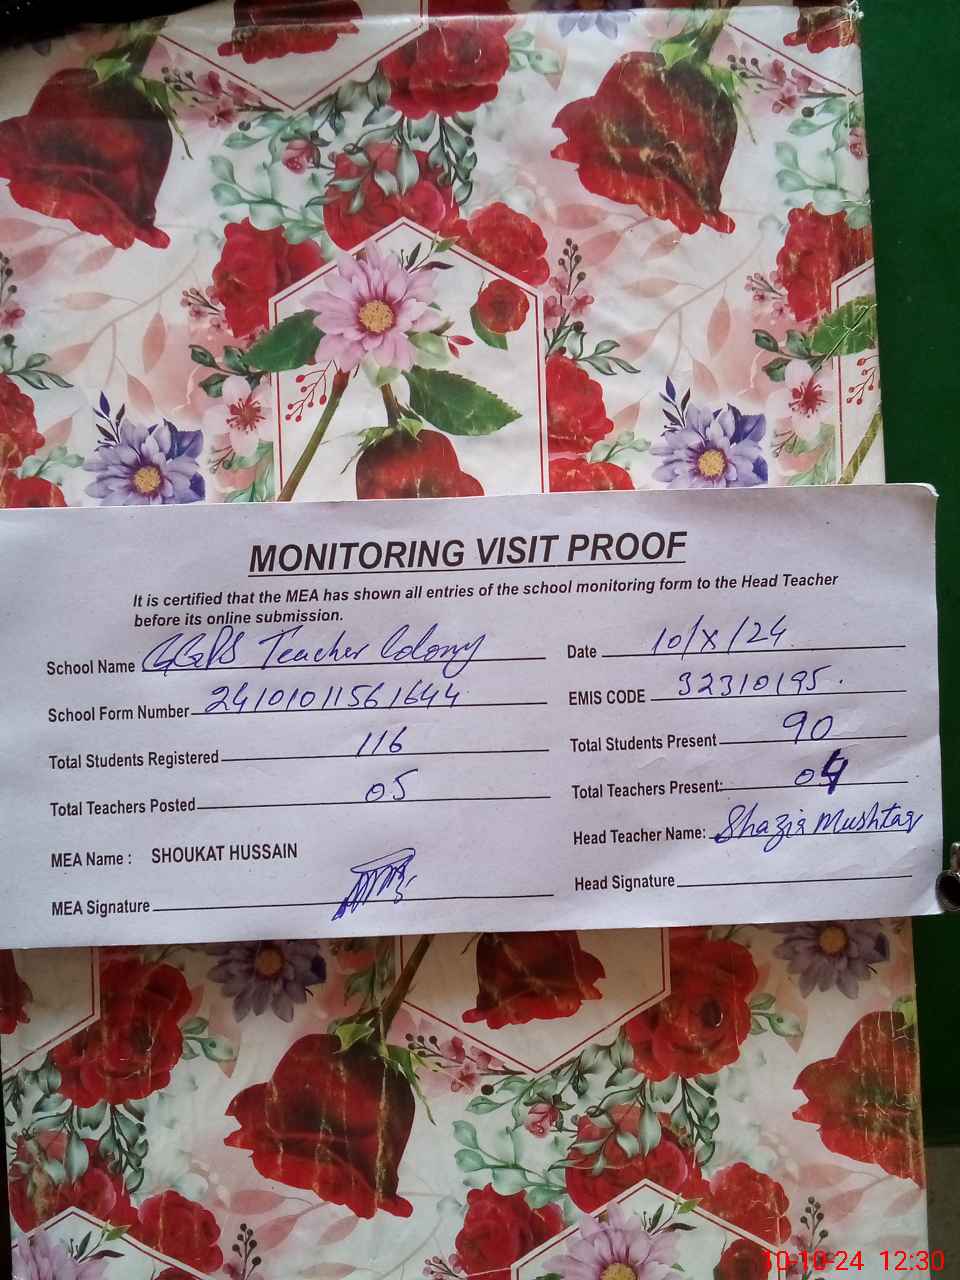 MONITORING VISIT PROOF
It is certified that the MEA has shown all entries of the school monitoring form to the Head Teacher
before its online submission.
School Name GGPS Teacher Colony
Date 10/X/24
School Form Number 24101011561644
EMIS CODE 32310195.
Total Students Registered 116
Total Students Present 90
Total Teachers Posted 05
Total Teachers Present: 04
MEA Name : SHOUKAT HUSSAIN
Head Teacher Name: Shazia Mushtaq
MEA Signature
Head Signature
10-10-24 12:30